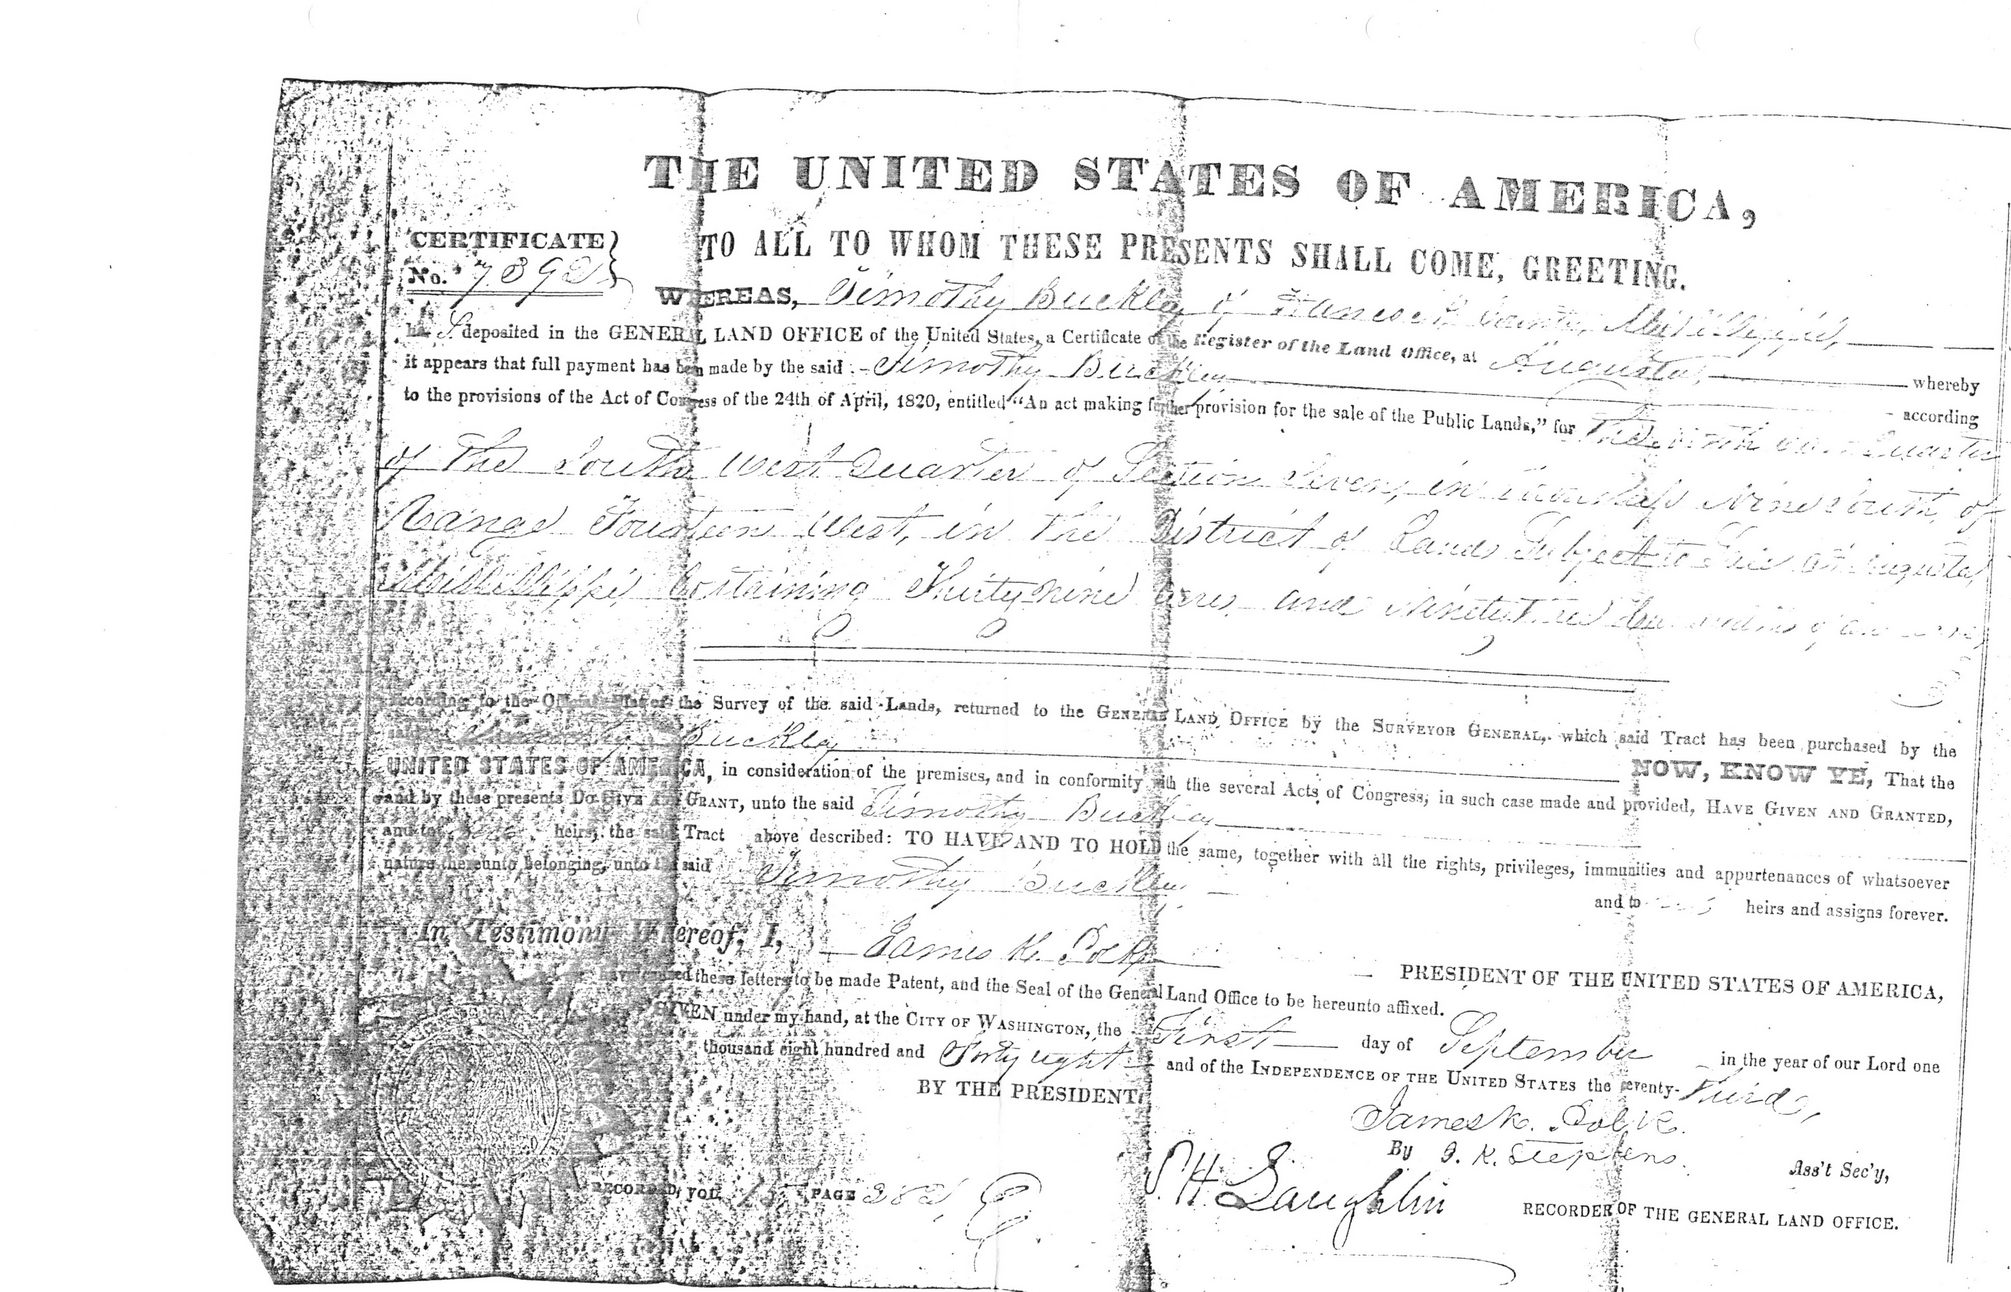 THE UNITED STATES OF AMERICA,
TO ALL TO WHOM THESE PRESENTS SHALL COME, GREETING.
CERTIFICATE
No. 7392
WHEREAS, Timothy Buckley of Hancock County, Mississippi,
ha s deposited in the GENERAL LAND OFFICE of the United States, a Certificate of the Register of the Land Office, at Augusta, whereby
it appears that full payment has been made by the said Timothy Buckley according
to the provisions of the Act of Congress of the 24th of April, 1820, entitled "An act making further provision for the sale of the Public Lands," for the Quarter
of the South West Quarter of Section Seven, in Township Nine South, of
Range Fourteen West, in the District of Lands Subject to Sale at Augusta,
Mississippi, Containing Thirty nine Acres, and of an acre,
according to the Official Plat of the Survey of the said Lands, returned to the GENERAL LAND OFFICE by the SURVEYOR GENERAL, which said Tract has been purchased by the
said Timothy Buckley NOW, KNOW YE, That the
UNITED STATES OF AMERICA, in consideration of the premises, and in conformity with the several Acts of Congress, in such case made and provided, HAVE GIVEN AND GRANTED,
and by these presents DO GIVE AND GRANT, unto the said Timothy Buckley
and to his heirs, the said Tract above described: TO HAVE AND TO HOLD the same, together with all the rights, privileges, immunities and appurtenances of whatsoever
nature thereunto belonging, unto the said Timothy Buckley and to his heirs and assigns forever.
In Testimony Whereof, I, James K. Polk PRESIDENT OF THE UNITED STATES OF AMERICA,
have caused these letters to be made Patent, and the Seal of the General Land Office to be hereunto affixed.
GIVEN under my hand, at the CITY OF WASHINGTON, the First day of September in the year of our Lord one
thousand eight hundred and Forty eight and of the INDEPENDENCE OF THE UNITED STATES the seventy-third,
BY THE PRESIDENT: James K. Polk
By J. K. Stephens Ass't Sec'y,
RECORDED, VOL. 15 PAGE 282
S. H. Laughlin RECORDER OF THE GENERAL LAND OFFICE.